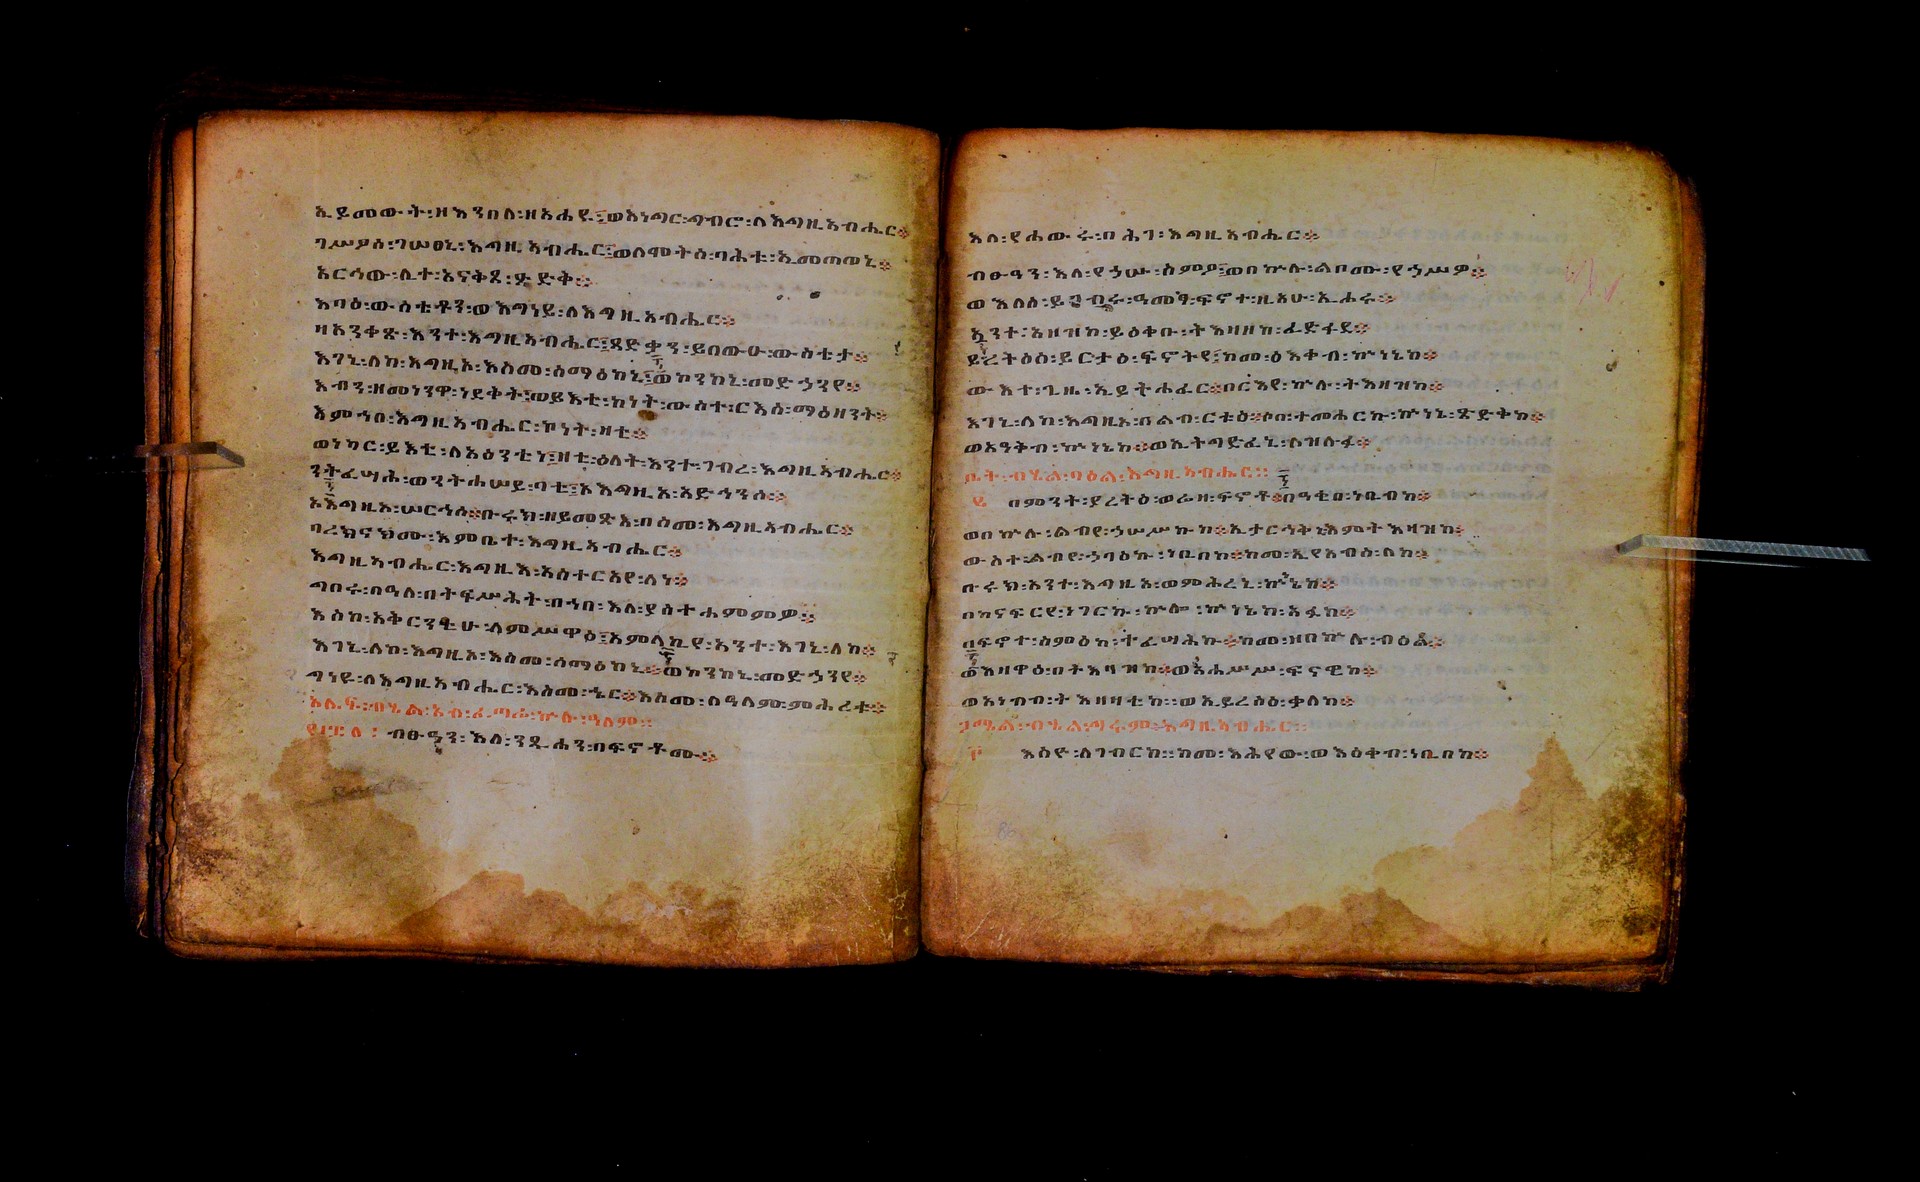 ኢይመውት፡ዘእንበለ፡ዘአሐዩ፤ወእነግር፡ግብሮ፡ለእግዚአብሔር።
ገሥዖሰ፡ገሠፀኒ፡እግዚአብሔር፤ወለሞትሰ፡ባሕቱ፡ኢመጠወኒ።
አርኅው፡ሊተ፡አናቅጸ፡ጽድቅ።
እባዕ፡ውስቴቶን፡ወእግነይ፡ለእግዚአብሔር።
ዛአንቀጽ፡እንተ፡እግዚአብሔር፤ጻድቃን፡ይበውሁ፡ውስቴታ።
እገኒ፡ለከ፡እግዚኦ፡እስመ፡ሰማዕከኒ፤ወኮንከኒ፡መድኃንየ።
እብን፡ዘመነንዋ፡ነደቅት፤ወይእቲ፡ከነት፡ውስተ፡ርእሰ፡ማዕዘንት።
እምኀበ፡እግዚአብሔር፡ኮነት፡ዛቲ።
ወነካር፡ይእቲ፡ለአዕንቲነ፤ዛቲ፡ዕለት፡እንተ፡ገብረ፡እግዚአብሔር።
ንትፈሣሕ፡ወንትሐሠይ፡ባቲ፤እእግዚኦ፡አድኅንሰ።
እእግዚኦ፡ሠርኅሰ።ቡሩክ፡ዘይመጽእ፡በስመ፡እግዚአብሔር።
ባረክናክሙ፡እምቤተ፡እግዚአብሔር።
እግዚአብሔር፡እግዚእ፡አስተርአየ፡ለነ።
ግበሩ፡በዓለ፡በትፍሥሕት፡በኀበ፡እለ፡ያስተሐምምዎ።
እስከ፡አቅርንቲሁ፡ለምሥዋዕ፤አምላኪየ፡አንተ፡እገኒ፡ለከ።
እገኒ፡ለከ፡እግዚኦ፡እስመ፡ሰማዕከኒ።ወኮንከኒ፡መድኃንየ።
ግነዩ፡ለእግዚአብሔር፡እስመ፡ኄር።እስመ፡ለዓለም፡ምሕረቱ።
አሌፍ፡ብሂል፡አብ፡ፈጣሬ፡ኵሉ፡ዓለም።
ብፁዓን፡እለ፡ንጹሐን፡በፍኖቶሙ።
እለ፡የሐውሩ፡በሕገ፡እግዚአብሔር።
ብፁዓን፡እለ፡የኃሡ፡ስምዖ፤ወበኵሉ፡ልቦሙ፡የኃሥዎ።
ወእለሰ፡ይገብሩ፡ዓመፃ፡ፍኖተ፡ዚአሁ፡ኢሐሩ።
አንተ፡አዘዝከ፡ይዕቀቡ፡ትእዛዘከ፡ፈድፋደ።
ይረትዕሰ፡ይርታዕ፡ፍኖትየ፤ከመ፡ዕእቀብ፡ኵነኔከ።
ውእተ፡ጊዜ፡ኢይትሐፈር።በርእየ፡ኵሉ፡ትእዛዝከ።
እገኒ፡ለከ፡እግዚኦ፡በልብ፡ርቱዕ።ሶበ፡ተመሐርኩ፡ኵነኔ፡ጽድቅከ።
ወአዓቅብ፡ኵነኔከ።ወኢትግድፈኒ፡ለዝሉፋ።
ቤት፡ብሂል፡ባዕል፡እግዚአብሔር።
በምንት፡ያረትዕ፡ወሬዛ፡ፍኖቶ።በዓቂበ፡ነቢብከ።
ወበኵሉ፡ልብየ፡ኃሠሥኩከ።ኢታርኅቅኒ፡እምትእዛዝከ።
ውስተ፡ልብየ፡ኃባዕኩ፡ነቢበከ።ከመ፡ኢየአብስ፡ለከ።
ቡሩክ፡አንተ፡እግዚኦ፡ወምሕረኒ፡ኵነኔከ።
በከናፍርየ፡ነገርኩ፡ኵሎ፡ኵነኔከ፡አፉከ።
በፍኖተ፡ስምዕከ፡ተፈሣሕኩ።ከመ፡ዘበኵሉ፡ብዕል።
ወእዛዋዕ፡በትእዛዝከ።ወአሐሥሥ፡ፍናዊከ።
ወእነብብ፡ትእዛዛቲከ።ወኢይረስዕ፡ቃለከ።
ጋሜል፡ብሂል፡ግሩም፡እግዚአብሔር።
እስዮ፡ለገብርከ።ከመ፡እሕየው፡ወእዕቀብ፡ነቢበከ።